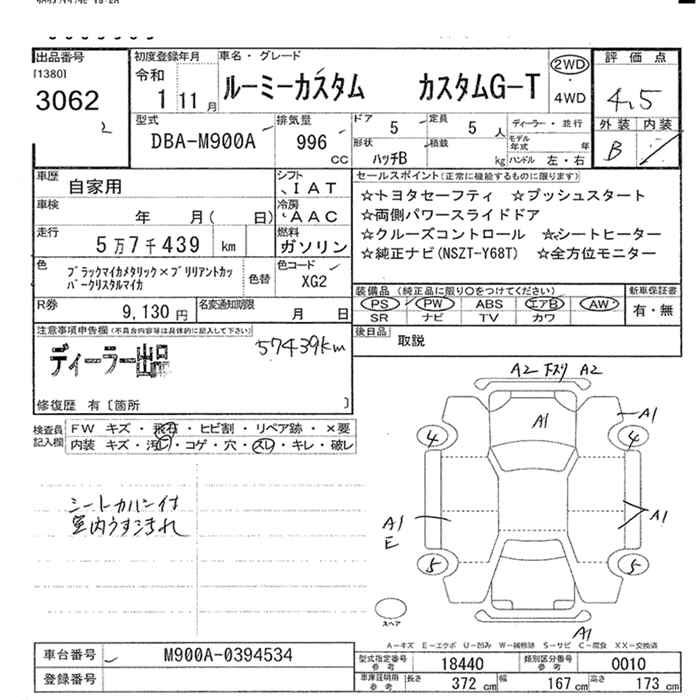 出品番号
[1380]
3062
2
初度登録年月
令和
1 11月
車名・グレード
ルーミーカスタム カスタムG-T
2WD
4WD
評価点
4.5
外装 内装
B
型式
DBA-M900A
排気量
996
CC
ドア
5
定員
5 人
形状
ハッチB
積載
kg
ディーラー・並行
モデル年式 年
ハンドル 左・右
車歴
自家用
シフト
IAT
車検
年 月( 日)
冷房
AAC
走行
5万7千439 km
燃料
ガソリン
色
ブラックマイカメタリック×ブリリアントカッパークリスタルマイカ
色替
色コード
XG2
R券
9,130 円
名変通知期限
月 日
セールスポイント(正常に機能するものに限ります)
☆トヨタセーフティ ☆プッシュスタート
☆両側パワースライドドア
☆クルーズコントロール ☆シートヒーター
☆純正ナビ(NSZT-Y68T) ☆全方位モニター
装備品 (純正品に限り〇をつけてください)
PS PW ABS エアB AW
SR ナビ TV カワ
新車保証書
有・無
後日品
取説
注意事項申告欄(不具合内容等は具体的に記入して下さい)
ディーラー出品
57439km
修復歴 有〔箇所 〕
検査員記入欄
FW キズ・飛石・ヒビ割・リペア跡・×要
内装 キズ・汚レ・コゲ・穴・スレ・キレ・破レ
シートカバー付
室内うすよごれ
A2 下スリ A2
A1
A1
4
4
A1
E
A1
5
5
スペア
A1
A-キズ E-エクボ U-凹み W-補修跡 S-サビ C-腐食 XX-交換済
車台番号
M900A-0394534
登録番号
型式指定番号 参考
18440
類別区分番号 参考
0010
車庫証明用 参考
長さ 372 cm
幅 167 cm
高さ 173 cm